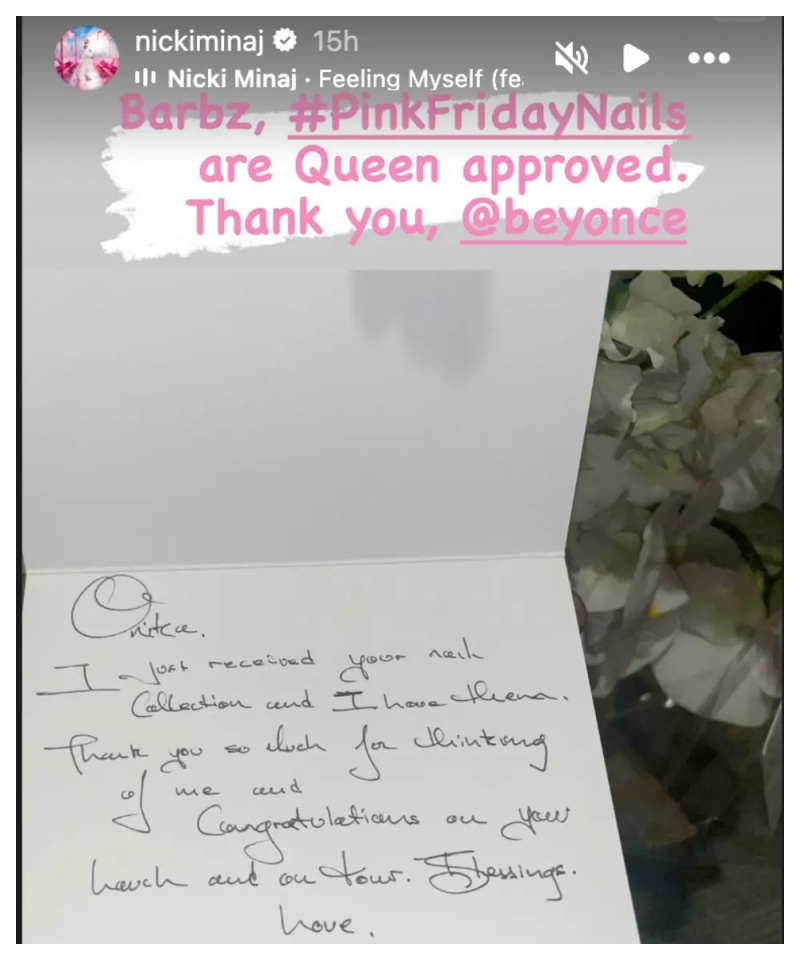 nickiminaj 15h
Nicki Minaj · Feeling Myself (fe
Barbz, #PinkFridayNails
are Queen approved.
Thank you, @beyonce
Onika.
I just received your nail
Collection and I love them.
Thank you so much for thinking
of me and
Congratulations on your
launch and on tour. Blessings.
Love.